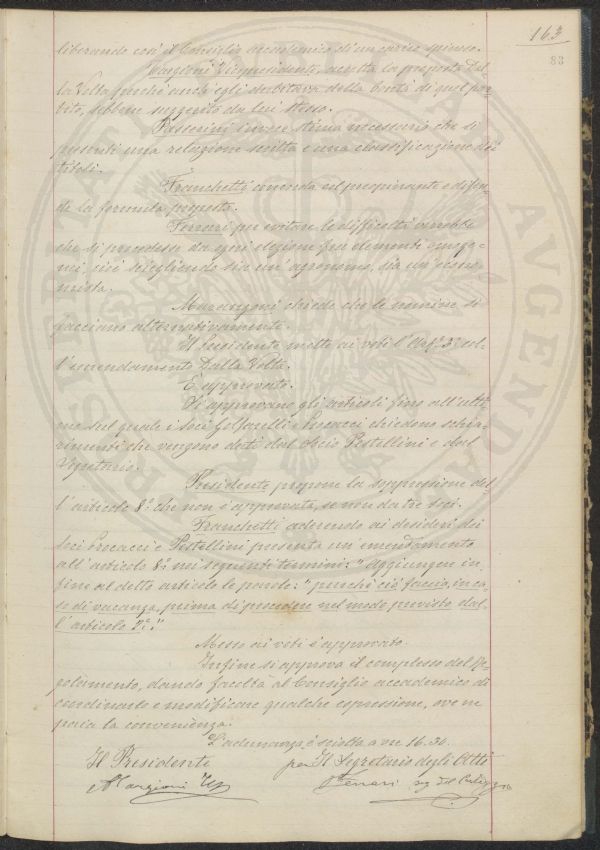 163
83
liberando così il Consiglio accademico di un carico spinoso.
Vicepresidente, accetta la proposta Dal-
la Volta perchè anch'egli dubitava della bontà di quel par-
tito, sebbene suggerito da lui stesso.
Passerini invece stima necessario che si
presenti una relazione scritta e una classificazione dei
titoli.
Franchetti concorda col preopinante e difen-
de la formula proposta.
Ferrari per evitare le difficoltà vorrebbe
che si procedesse da ogni elezione fra elementi omoge-
nei, cioè scegliendo sia un'agronomo, sia un'econo-
mista.
Marangoni chiede che le nomine si
facciano alternativamente.
Il Presidente mette ai voti l'Art. 3º col-
l'emendamento Dalla Volta.
È approvato.
Si approvano gli articoli fino all'ulti-
mo sul quale i soci e Procacci chiedono schia-
rimenti che vengono dati dal socio Pestellini e dal
Segretario.
Presidente propone la soppressione del-
l'articolo 8º che non è approvata, se non da tre soci.
Franchetti aderendo ai desideri dei
soci Procacci e Pestellini presenta un'emendamento
all'articolo 8º nei seguenti termini: "Aggiungere in
fine al detto articolo le parole: "purchè ciò faccia, in ca-
so di vacanza, prima di procedere nel modo previsto dal-
l'articolo 2º."
Messo ai voti è approvato.
Infine si approva il complesso del Re-
golamento, dando facoltà al Consiglio accademico di
coordinarlo e modificare qualche espressione, ove ne
paia la convenienza.
L'adunanza è sciolta a ore 16.30.
Il Presidente per Il Segretario degli Atti
Ferrari
PROSPERITATI PVBLICAE AVGENDAE